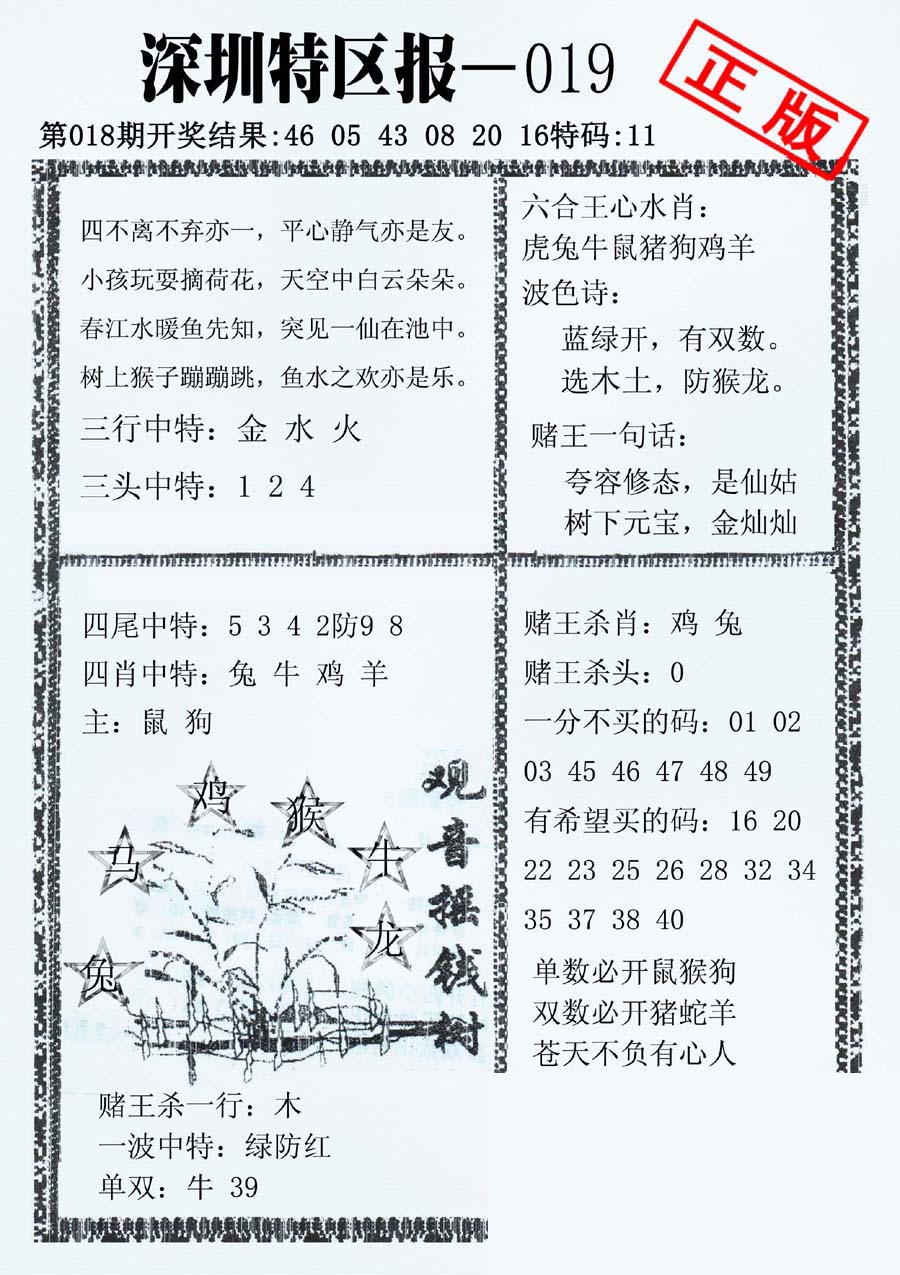 深圳特区报—019
正版
第018期开奖结果:46 05 43 08 20 16特码:11
四不离不弃亦一，平心静气亦是友。
小孩玩耍摘荷花，天空中白云朵朵。
春江水暖鱼先知，突见一仙在池中。
树上猴子蹦蹦跳，鱼水之欢亦是乐。
三行中特：金 水 火
三头中特：1 2 4
六合王心水肖：
虎兔牛鼠猪狗鸡羊
波色诗：
蓝绿开，有双数。
选木土，防猴龙。
赌王一句话：
夸容修态，是仙姑
树下元宝，金灿灿
四尾中特：5 3 4 2防9 8
四肖中特：兔 牛 鸡 羊
主：鼠 狗
鸡
猴
马
牛
龙
兔
观音摇钱树
赌王杀一行：木
一波中特：绿防红
单双：牛 39
赌王杀肖：鸡 兔
赌王杀头：0
一分不买的码：01 02
03 45 46 47 48 49
有希望买的码：16 20
22 23 25 26 28 32 34
35 37 38 40
单数必开鼠猴狗
双数必开猪蛇羊
苍天不负有心人